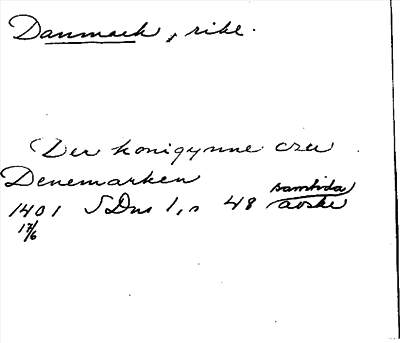 Danmark, rike.
Der konigynne czu
Denemarken
samtida
1401 SDns 1, n 48 avskr
17/6